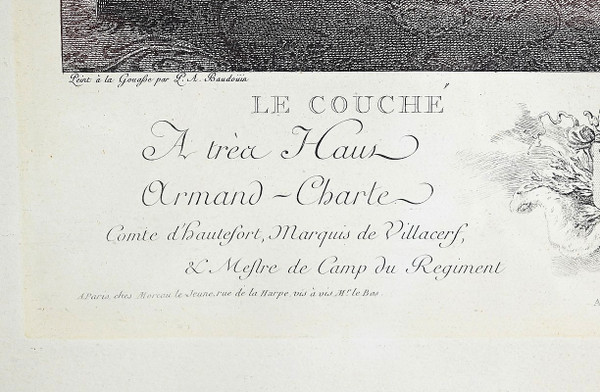 Peint à la Gouaſse par P. A. Baudoüin
LE COUCHÉ
A très Haut
Armand-Charle
Comte d'hautefort, Marquis de Villacerf,
& Meſtre de Camp du Regiment
A Paris, chez Moreau le Jeune, rue de la Harpe, vis à vis Mr. le Bas.
A